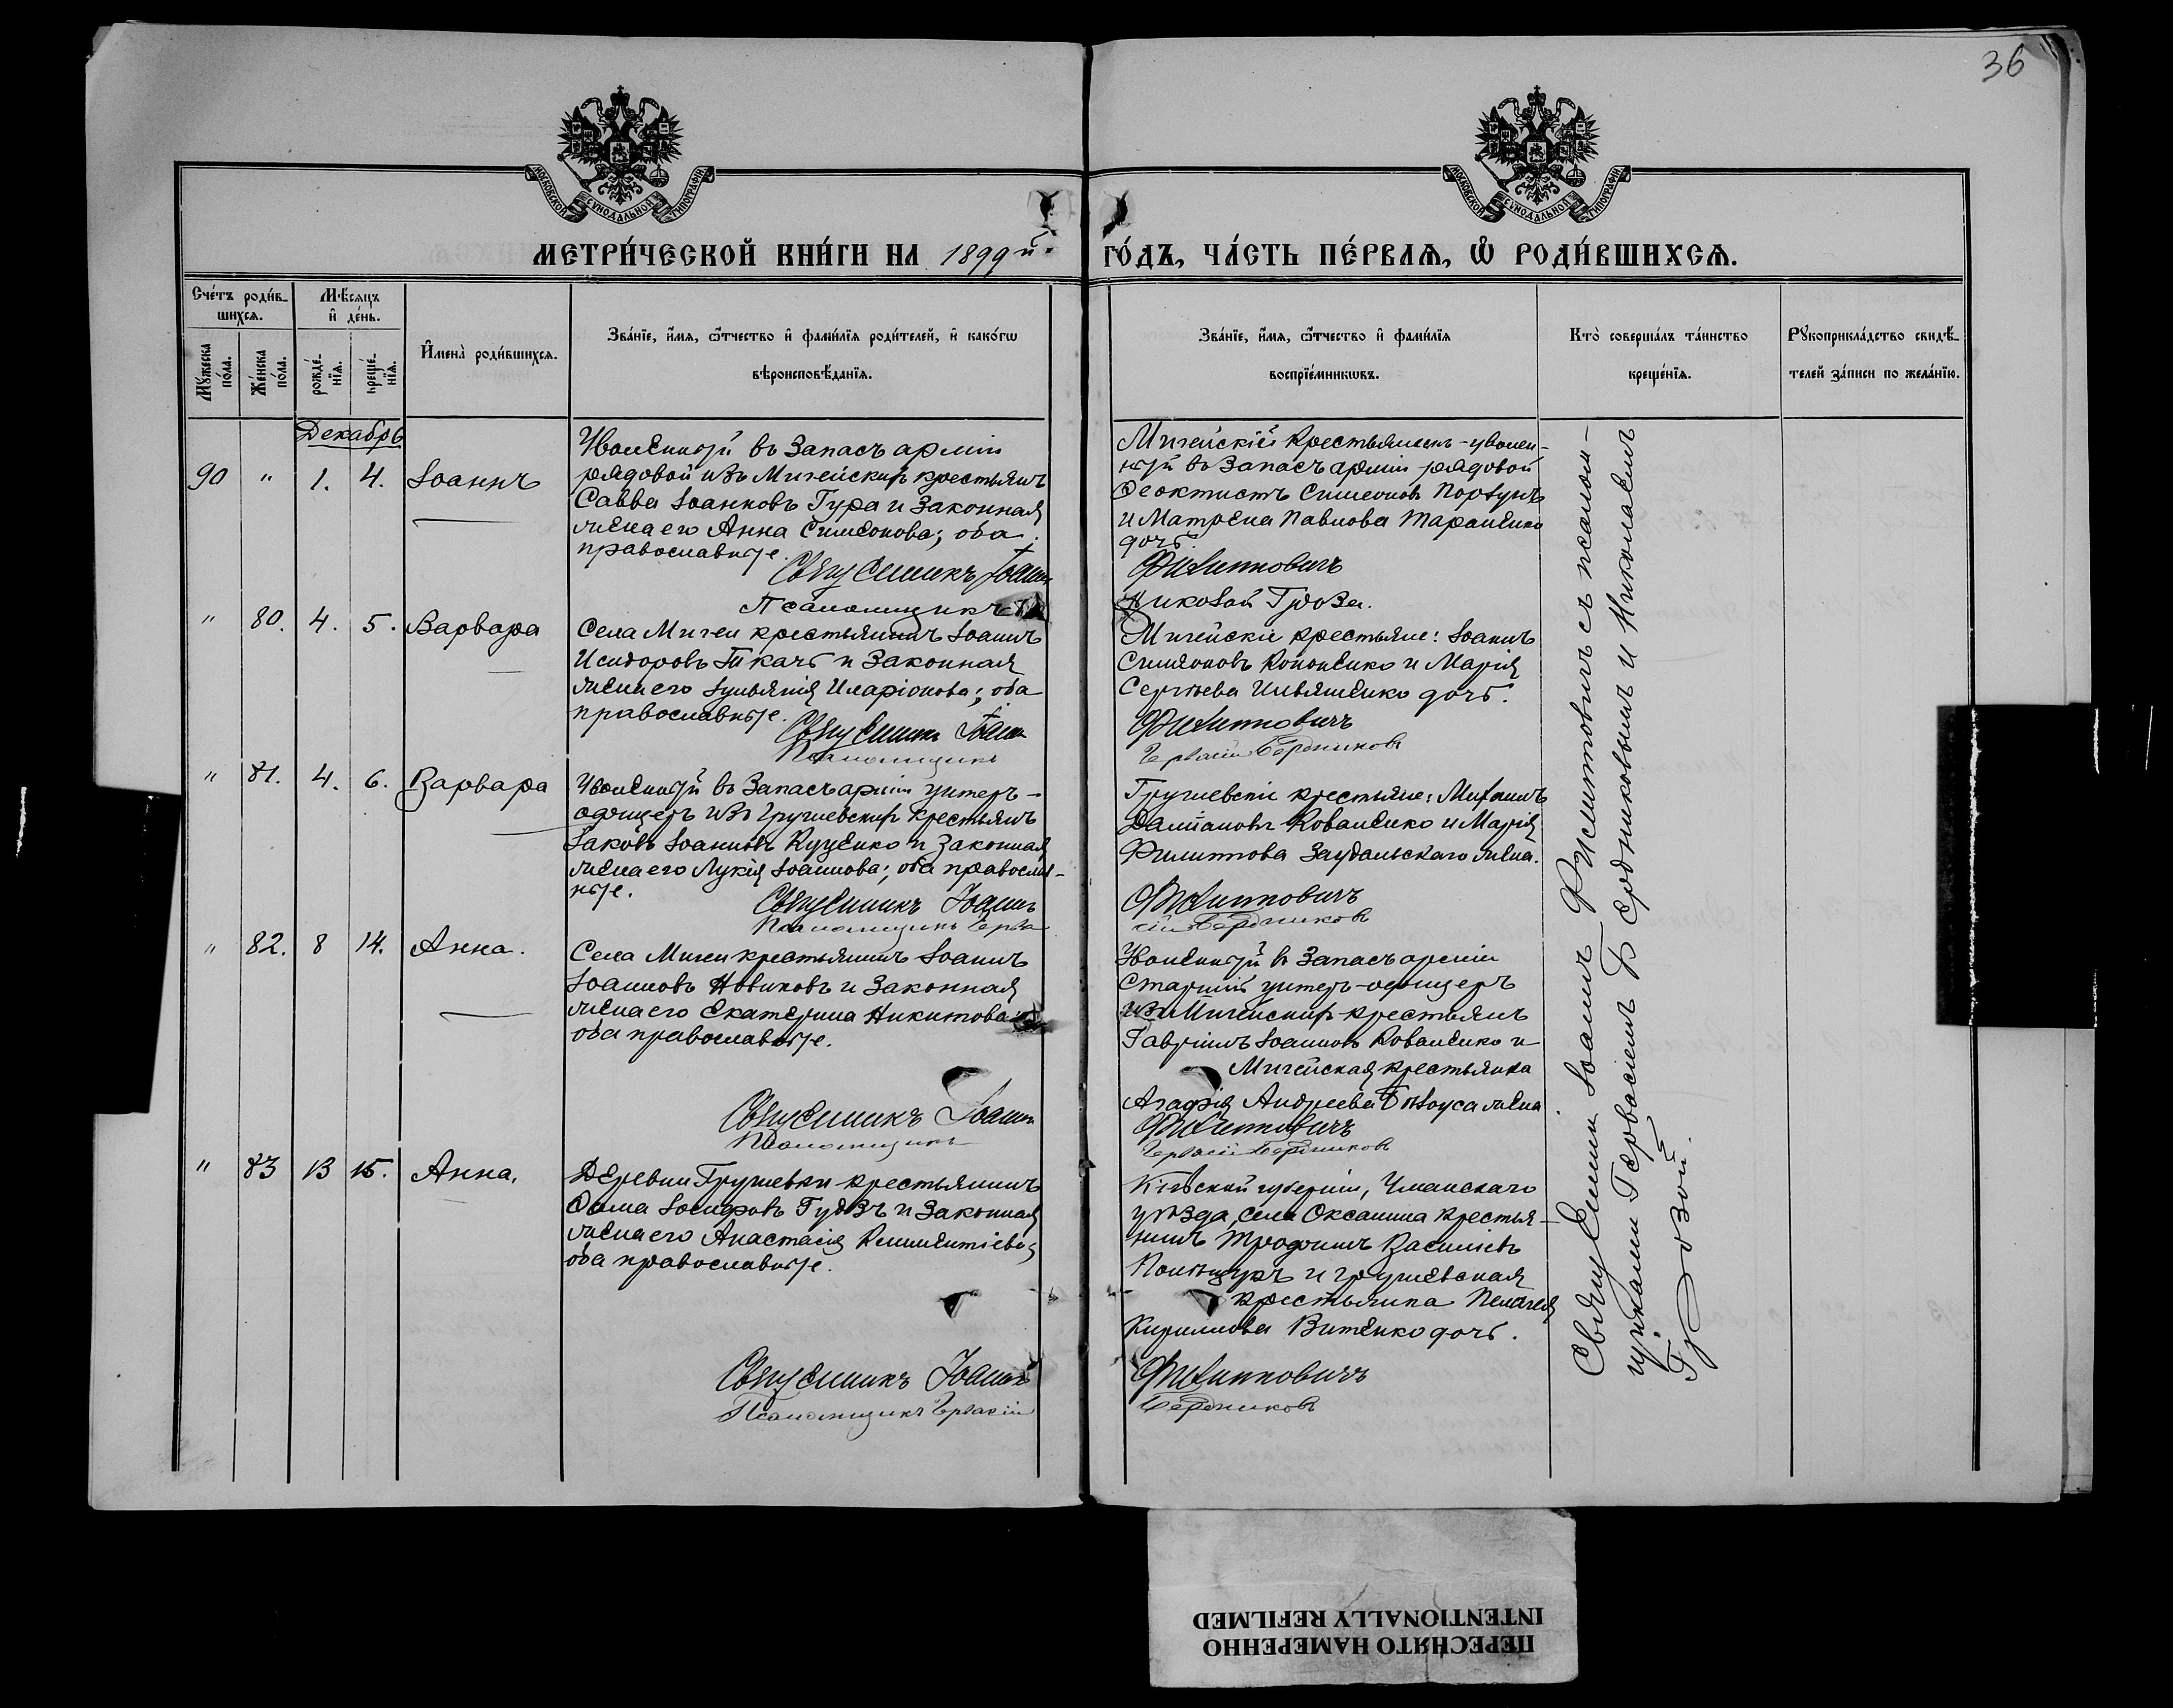 36
МОСКОВСКОЙ СѴНОДАЛЬНОЙ ТИПОГРАФІИ
МОСКОВСКОЙ СѴНОДАЛЬНОЙ ТИПОГРАФІИ
МЕТРИ́ЧЕСКОЙ КНИ́ГИ НА 1899й
ГО́ДЪ, ЧА́СТЬ ПЕ́РВАѦ, Ѡ҆ РОДИ́ВШИХСѦ.
Сче́тъ роди́в-
шихсѧ.
Мꙋ́жеска по́ла.
Же́нска по́ла.
Мѣ́сѧцъ
и҆ де́нь.
рожде́-
нїѧ.
креще́-
нїѧ.
И҆мена̀ роди́вшихсѧ.
Зва́нїе, и҆́мѧ, ѻ҆́тчество и҆ фами́лїѧ роди́телей, и҆ како́гѡ
вѣроисповѣ́данїѧ.
Зва́нїе, и҆́мѧ, ѻ҆́тчество и҆ фами́лїѧ
воспрїе́мникѡвъ.
Кто̀ соверша́лъ та́инство
креще́нїѧ.
Рꙋкоприкла́дство свидѣ́-
телей за́писи по жела́нїю.
Декабрь
90 " 1. 4. Іоаннъ
Уволенный въ Запасъ арміи
рядовой изъ Мигейскихъ крестьянъ
Савва Іоанновъ Гура и Законная
жена его Анна Симеонова; оба
православные.
Священникъ Іоаннъ
Псаломщикъ
Мигейскій крестьянинъ - уволен-
ный въ Запасъ арміи рядовой
Феоктистъ Симеоновъ
и Матрена Павлова Тараненко
дочь.
Филипповичъ
Николай Гроза.
" 80. 4. 5. Варвара
Села Мигеи крестьянинъ Іоаннъ
Исидоровъ Ткачъ и Законная
жена его Іуліанія Иларіонова; оба
православные.
Священникъ Іоаннъ
Псаломщикъ
Мигейскіе крестьяне: Іоаннъ
Симеоновъ Кононенко и Марія
Сергѣева Ильяшенко дочь.
Филипповичъ
Гервасій Бердниковъ
" 81. 4. 6. Варвара
Уволенный въ Запасъ арміи унтеръ-
офицеръ изъ Грушевскихъ крестьянъ
Іаковъ Іоанновъ Куценко и Законная
жена его Лукія Іоаннова; оба православ-
ные.
Священникъ Іоаннъ
Псаломщикъ Герва
Грушевскіе крестьяне: Михаилъ
Даміановъ Коваленко и Марія
Филиппова Заудальскаго жена.
Филипповичъ
сій Бердниковъ
" 82. 8 14. Анна.
Села Мигеи крестьянинъ Іоаннъ
Іоанновъ Новиковъ и Законная
жена его Екатерина Никитова;
оба православные.
Священникъ Іоаннъ
Псаломщикъ
Уволенный въ Запасъ арміи
Старшій унтеръ-офицеръ
изъ Мигейскихъ крестьянъ
Гавріилъ Іоанновъ Коваленко и
Мигейская крестьянка
Агафія Андреева Бѣлоуса жена.
Филипповичъ
Гервасій Бердниковъ
" 83 13 15. Анна.
Деревни Грушевки крестьянинъ
Фома Іосифовъ Гудзъ и Законная
жена его Анастасія Климентіева;
оба православные.
Священникъ Іоаннъ
Псаломщикъ Гервасій
Кіевской губерніи, Уманскаго
уѣзда, села Оксанина крестья-
нинъ Трофимъ Василіевъ
Полищукъ и грушевская
крестьянка Пелагея
Кириллова Витенко дочь.
Филипповичъ
Бердниковъ
Священникъ Іоаннъ Филипповичъ съ псалом-
щиками Гервасіемъ Бердниковымъ и Николаемъ
Грозой.
ПЕРЕСНЯТО НАМЕРЕННО
INTENTIONALLY REFILMED